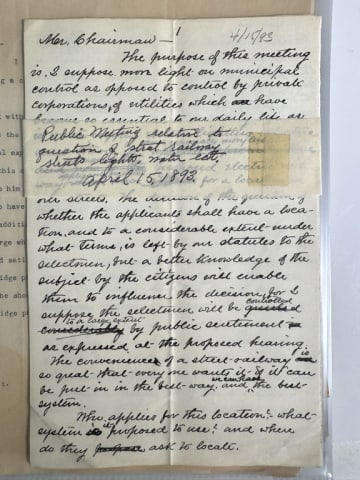 1
4/15/93
Mr. Chairman —
The purpose of this meeting
is I suppose more light on municipal
control as opposed to control by private
corporations, of utilities which are have
become so essential to our daily life as
Public Meeting relative to
question of street railway
streets lights, water etc,
April 15, 1893.
for a local
our streets. The decision of the question of
whether the applicants shall have a loca-
tion, and to a considerable extent under
what terms, is left by our statutes to the
selectmen, but a better knowledge of the
subject by the citizens will enable
them to influence the decision, for I
suppose the selectmen will be controlled
to a large extent
considerably by public sentiment
as expressed at the proposed hearing.
The convenience of a street-railway is
so great that every one wants it if it can
be put in in the best way, and the best
system.
Who applies for this location? what
system is it proposed to use? and where
do they propose ask to locate.